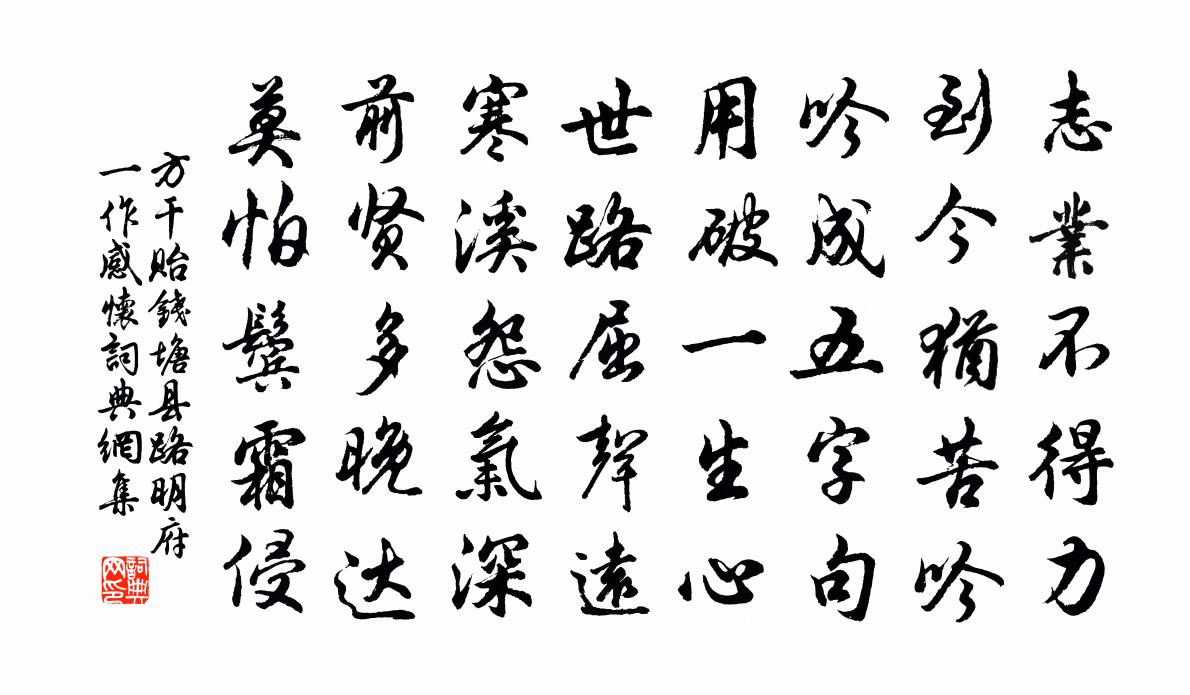 志業不得力
到今猶苦吟
吟成五字句
用破一生心
世路屈聲遠
寒溪怨氣深
前贤多晚达
莫怕鬂霜侵
方干貽錢塘县路明府
一作感懷詞典網集
詞典网印